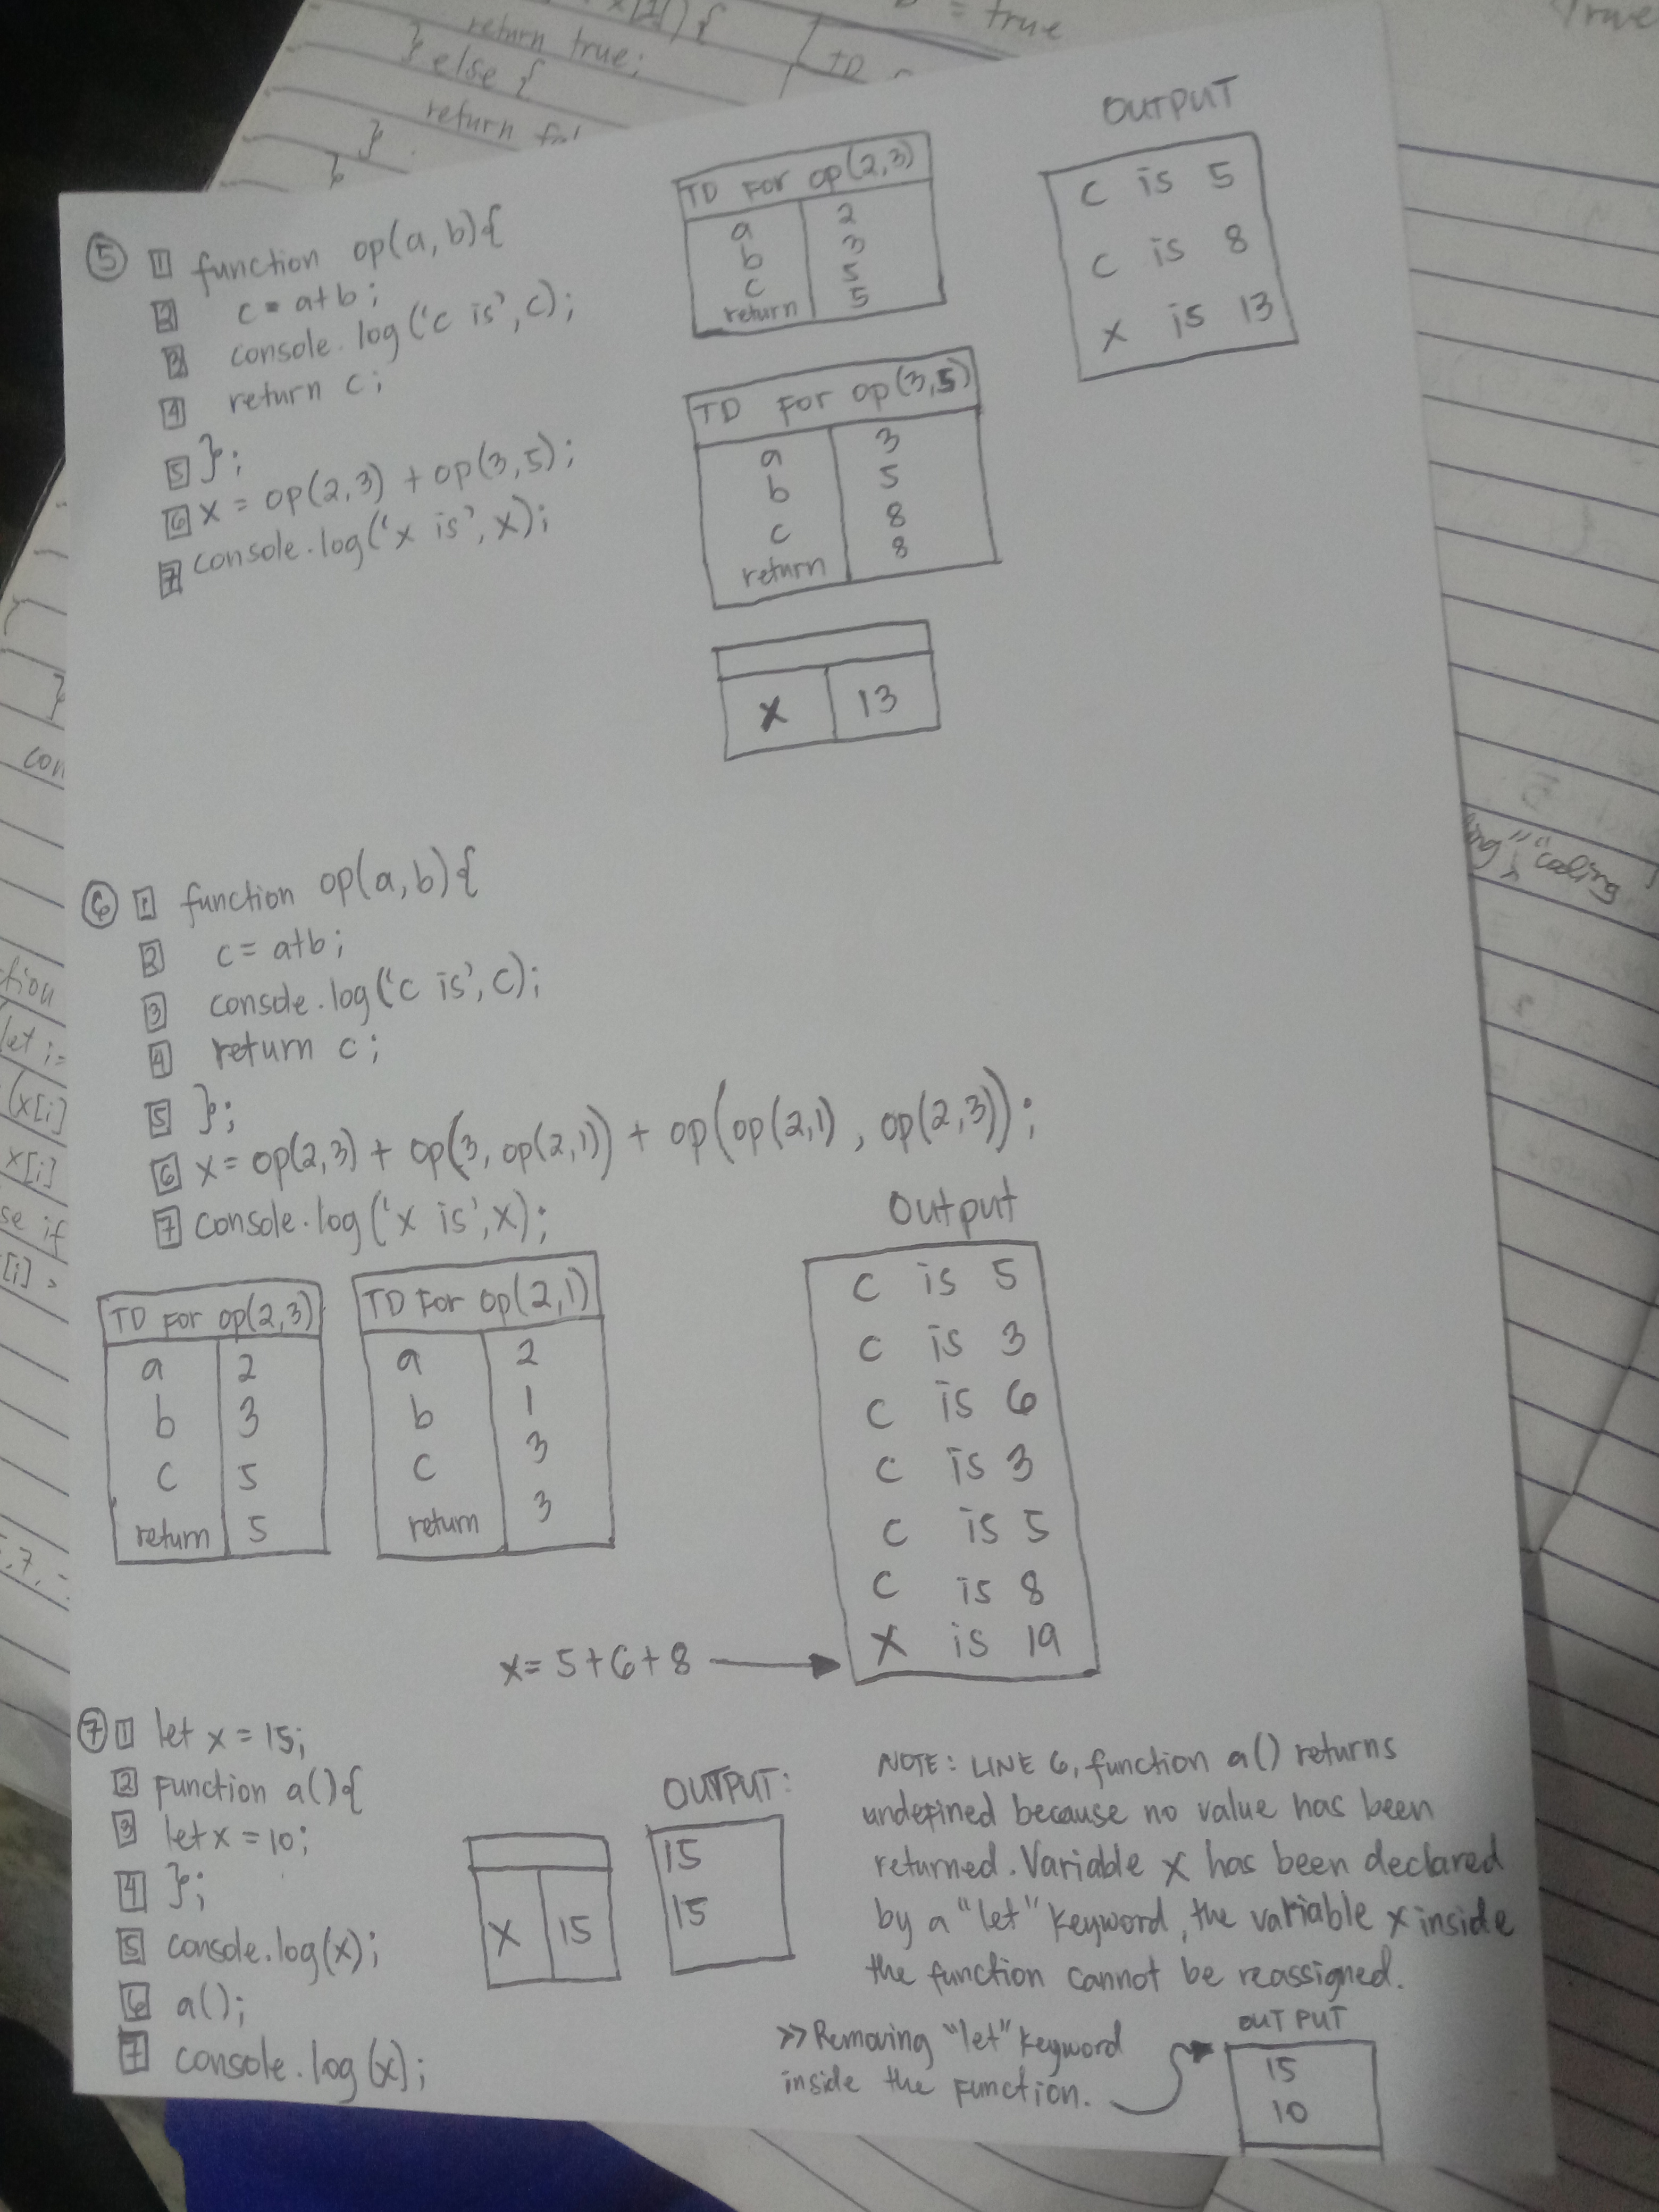 return true;
} else {
return
}
}
= true
TD
True
OUTPUT
C is 5
C is 8
X is 13
⑤ 1 function op(a,b){
2 c = a+b;
3 console.log('c is', c);
4 return c;
5 };
6 x = op(2,3) + op(3,5);
7 console.log('x is', x);
TD For op(2,3)
a 2
b 3
c 5
return 5
TD For op(3,5)
a 3
b 5
c 8
return 8
X 13
⑥ 1 function op(a,b){
2 c = a+b;
3 console.log('c is', c);
4 return c;
5 };
6 x = op(2,3) + op(3, op(2,1)) + op(op(2,1), op(2,3));
7 console.log('x is', x);
TD For op(2,3)
a 2
b 3
c 5
return 5
TD For op(2,1)
a 2
b 1
c 3
return 3
Output
C is 5
C is 3
C is 6
C is 3
C is 5
C is 8
X is 19
x = 5+6+8
⑦ 1 let x = 15;
2 Function a(){
3 let x = 10;
4 };
5 console.log(x);
6 a();
7 console.log(x);
X 15
OUTPUT:
15
15
NOTE: LINE 6, function a() returns
undefined because no value has been
returned. Variable X has been declared
by a "let" keyword, the variable x inside
the function cannot be reassigned.
>> Removing "let" keyword
inside the Function.
OUTPUT
15
10
let i=
(x[i]
x[i]
se if
[i] >
"coding